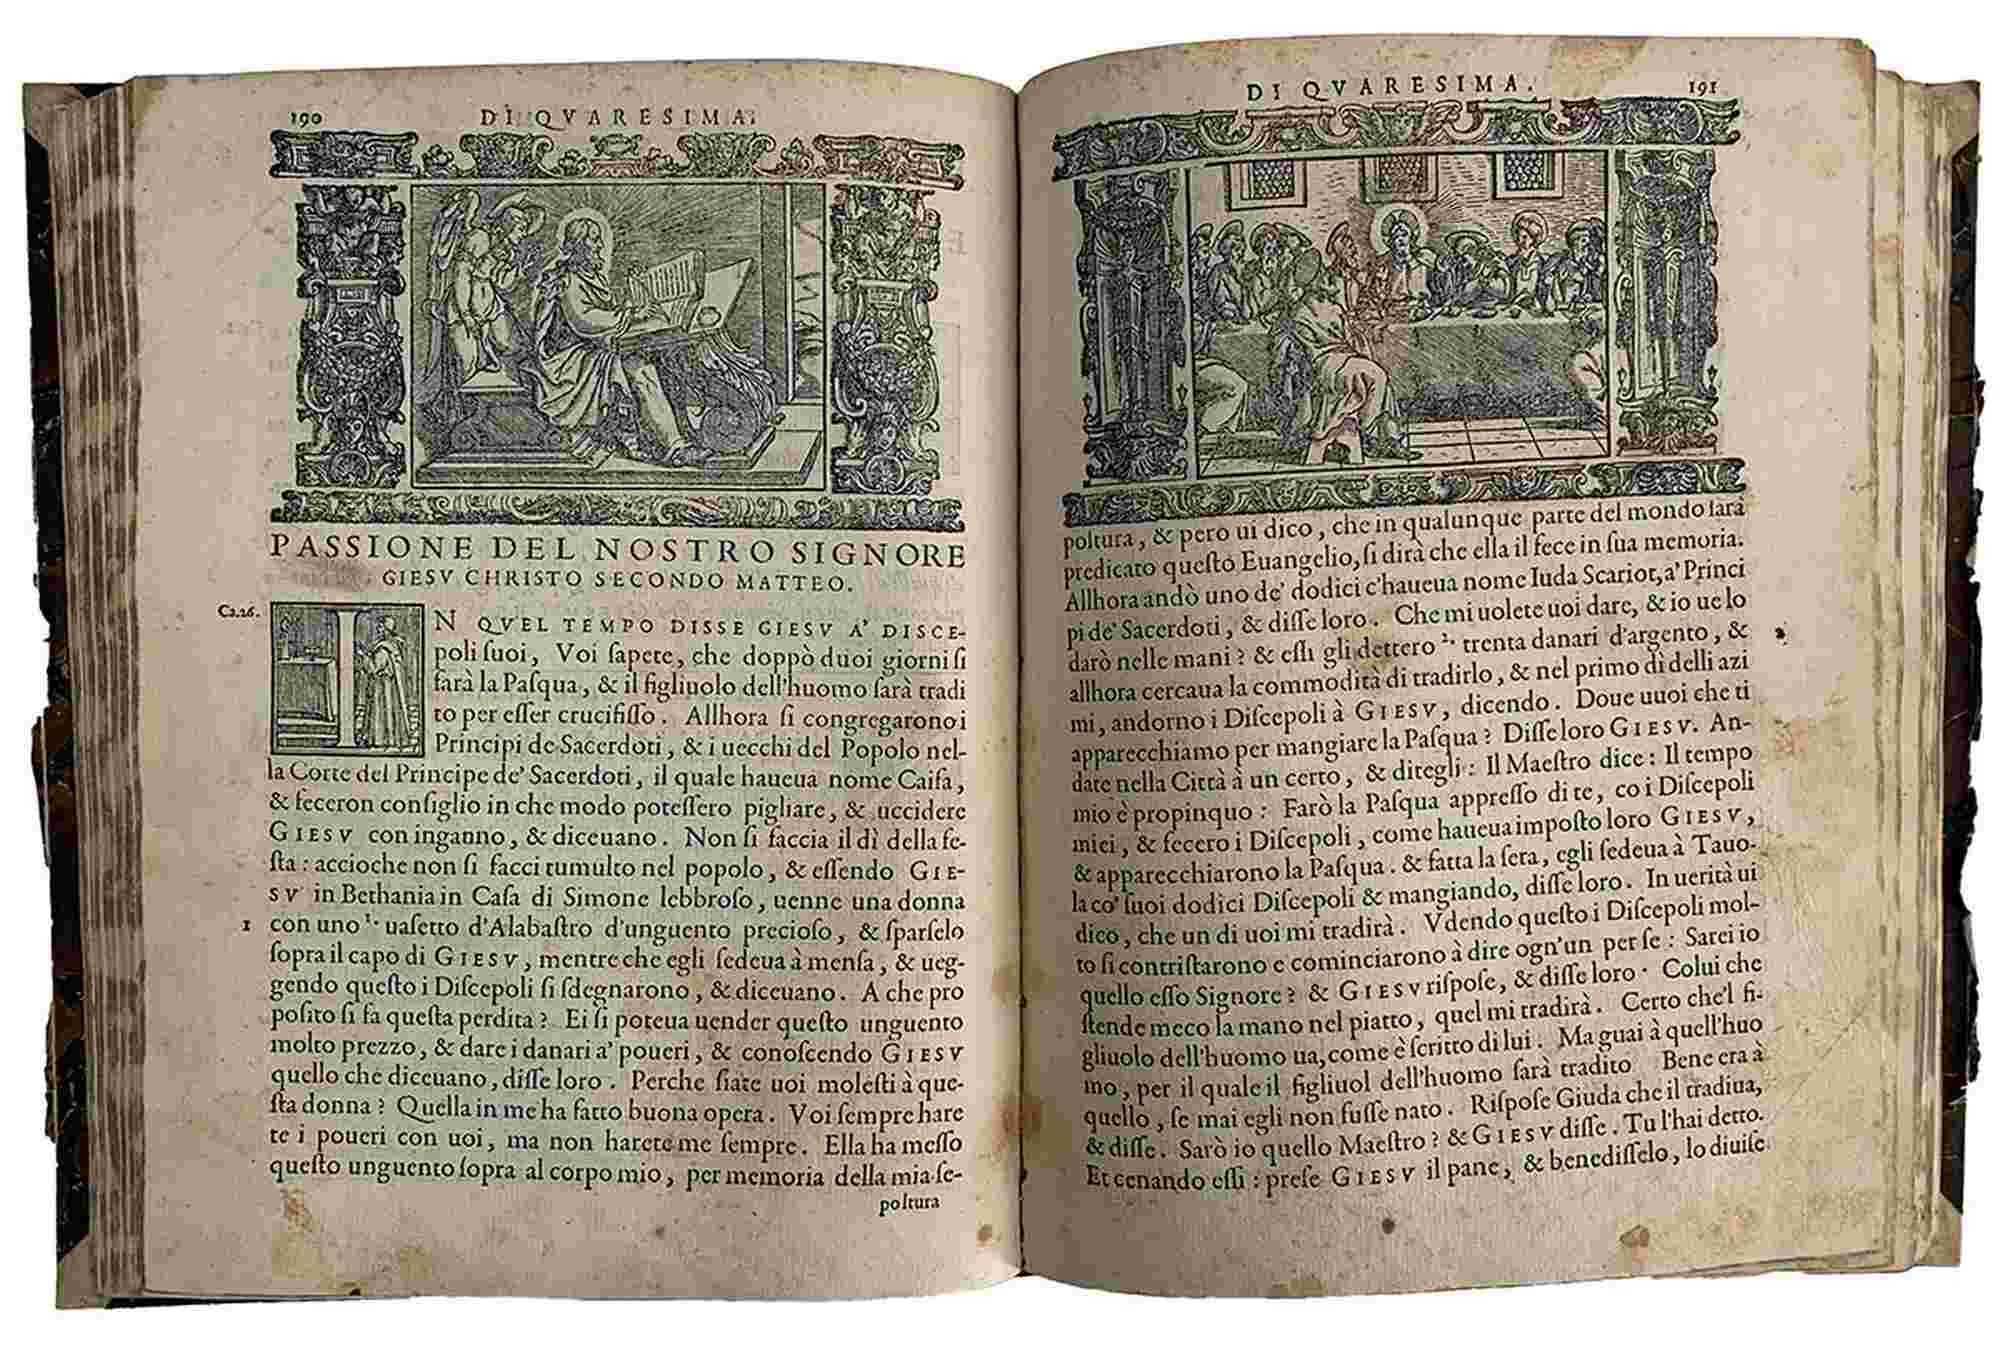 190
DI QVARESIMA.
PASSIONE DEL NOSTRO SIGNORE
GIESV CHRISTO SECONDO MATTEO.
Ca.26.
IN QVEL TEMPO DISSE GIESV A' DISCE-
poli ſuoi, Voi ſapete, che doppò duoi giorni ſi
farà la Paſqua, & il figliuolo dell'huomo ſarà tradi
to per eſſer crucifiſſo. Allhora ſi congregarono i
Principi de Sacerdoti, & i uecchi del Popolo nel-
la Corte del Principe de' Sacerdoti, il quale haueua nome Caifa,
& feceron conſiglio in che modo poteſſero pigliare, & uccidere
GIESV con inganno, & diceuano. Non ſi faccia il dì della fe-
ſta: accioche non ſi facci tumulto nel popolo, & eſſendo GIE-
SV in Bethania in Caſa di Simone lebbroſo, uenne una donna
1 con uno 1. uaſetto d'Alabaſtro d'unguento precioſo, & ſparſelo
ſopra il capo di GIESV, mentre che egli ſedeua à menſa, & ueg-
gendo queſto i Diſcepoli ſi ſdegnarono, & diceuano. A che pro
poſito ſi fa queſta perdita? Ei ſi poteua uender queſto unguento
molto prezzo, & dare i danari a' poueri, & conoſcendo GIESV
quello che diceuano, diſſe loro. Perche ſiate uoi moleſti à que-
ſta donna? Quella in me ha fatto buona opera. Voi ſempre hare
te i poueri con uoi, ma non harete me ſempre. Ella ha meſſo
queſto unguento ſopra al corpo mio, per memoria della mia ſe-
poltura
DI QVARESIMA.
191
poltura, & pero ui dico, che in qualunque parte del mondo ſarà
predicato queſto Euangelio, ſi dirà che ella il fece in ſua memoria.
Allhora andò uno de' dodici c'haueua nome Iuda Scariot, a' Princi
pi de' Sacerdoti, & diſſe loro. Che mi uolete uoi dare, & io ue lo
darò nelle mani? & eſſi gli dettero 2. trenta danari d'argento, & 2
allhora cercaua la commodità di tradirlo, & nel primo dì delli azi
mi, andorno i Diſcepoli à GIESV, dicendo. Doue uuoi che ti
apparecchiamo per mangiare la Paſqua? Diſſe loro GIESV. An-
date nella Città à un certo, & ditegli: Il Maeſtro dice: Il tempo
mio è propinquo: Farò la Paſqua appreſſo di te, co i Diſcepoli
miei, & fecero i Diſcepoli, come haueua impoſto loro GIESV,
& apparecchiarono la Paſqua. & fatta la ſera, egli ſedeua à Tauo-
la co' ſuoi dodici Diſcepoli & mangiando, diſſe loro. In uerità ui
dico, che un di uoi mi tradirà. Vdendo queſto i Diſcepoli mol-
to ſi contriſtarono e cominciarono à dire ogn'un per ſe: Sarei io
quello eſſo Signore? & GIESV riſpoſe, & diſſe loro. Colui che
ſtende meco la mano nel piatto, quel mi tradirà. Certo che'l fi-
gliuolo dell'huomo ua, come è ſcritto di lui. Ma guai à quell'huo
mo, per il quale il figliuol dell'huomo ſarà tradito Bene era à
quello, ſe mai egli non fuſſe nato. Riſpoſe Giuda che il tradiua,
& diſſe. Sarò io quello Maeſtro? & GIESV diſſe. Tu l'hai detto.
Et cenando eſſi: preſe GIESV il pane, & benediſſelo, lo diuiſe